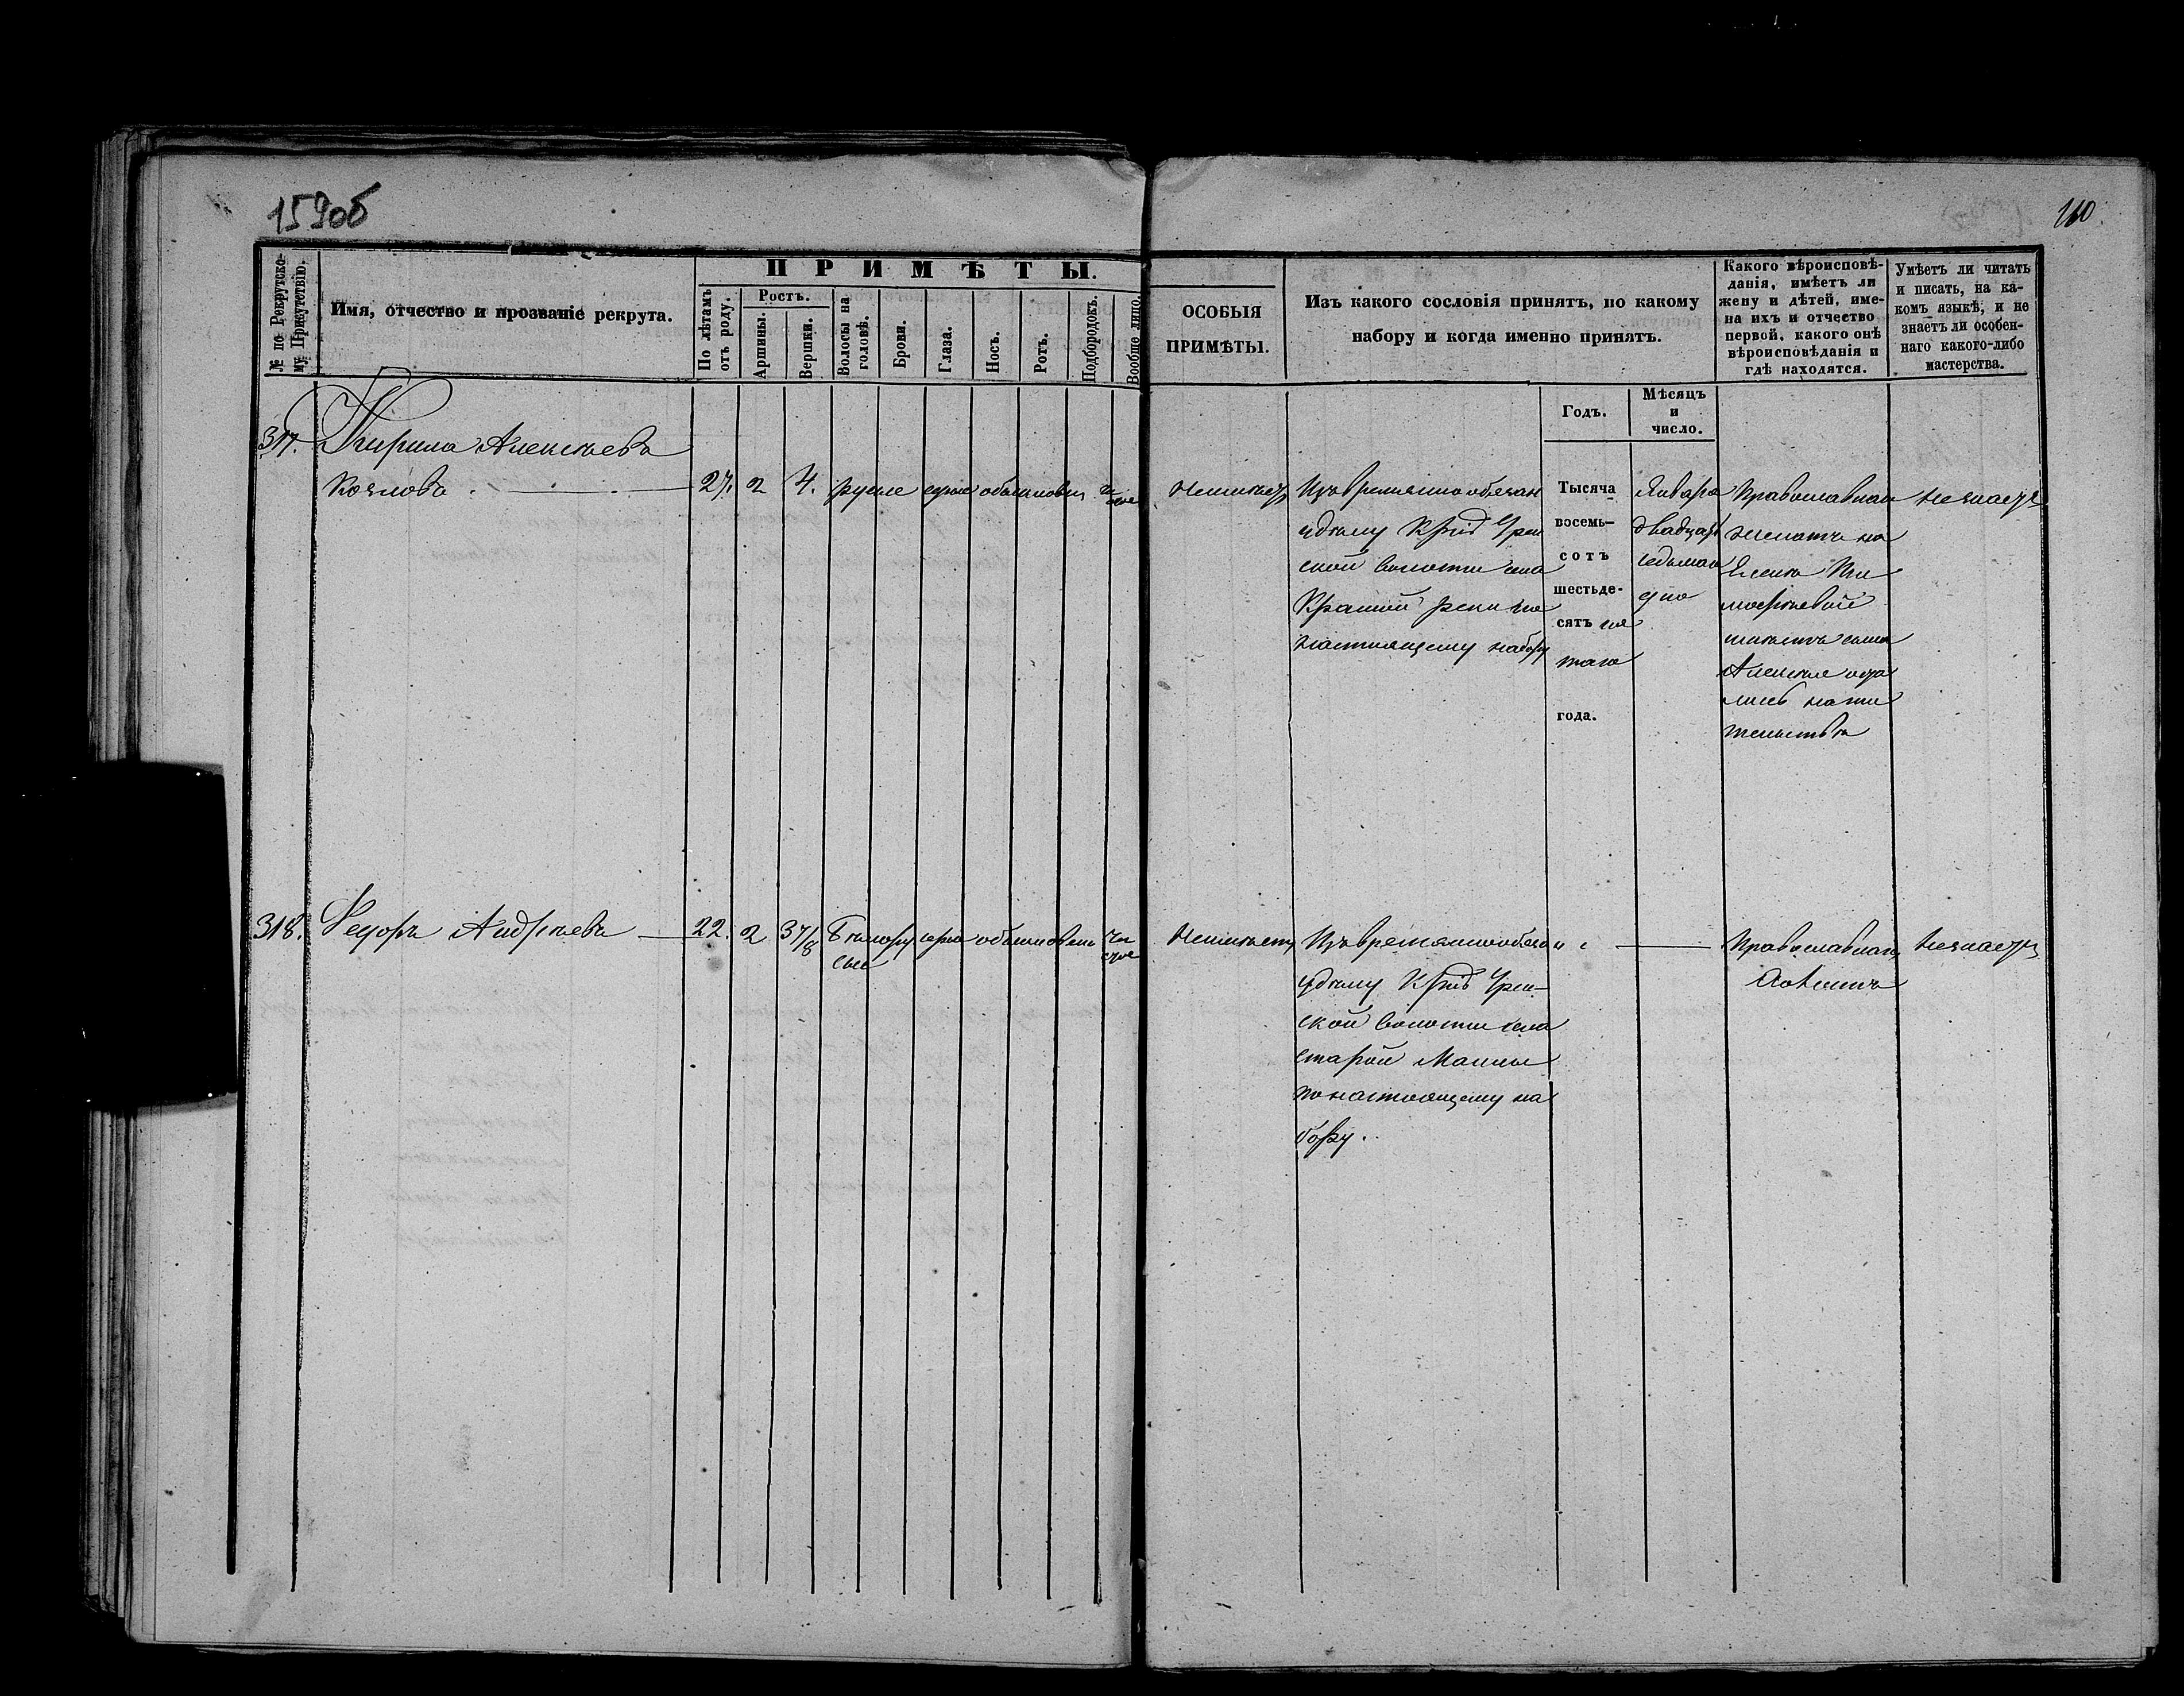 159об
160
№ по Рекрутско-
му Присутствію.
Имя, отчество и прозваніе рекрута.
ПРИМѢТЫ.
По лѣтамъ
отъ роду.
Ростъ.
Аршины.
Вершки.
Волосы на
головѣ.
Брови.
Глаза.
Носъ.
Ротъ.
Подбородокъ.
Вообще лицо.
ОСОБЫЯ
ПРИМѢТЫ.
Изъ какого сословія принятъ, по какому
набору и когда именно принятъ.
Какого вѣроисповѣ-
данія, имѣетъ ли
жену и дѣтей, име-
на ихъ и отчество
первой, какого онѣ
вѣроисповѣданія и
гдѣ находятся.
Умѣетъ ли читать
и писать, на ка-
комъ языкѣ, и не
знаетъ ли особен-
наго какого-либо
мастерства.
Годъ.
Мѣсяцъ
и
число.
317. Кирила Алексѣевъ
Козловъ. 27. 2 4. русые сѣрые обыкновен. чи
стое
Неимѣетъ
Изъ временно обязан
удѣлу Крнъ
ской волости села
Красной рѣки по
настоящему набору
Тысяча
восемь-
сотъ
шестьде-
сятъ пя
таго
года.
Января
двадцать
седьмаго
дно
Православнаго
женатъ на
Еленѣ Ти
мофѣевой
имѣетъ сына
Алексѣя оста
лись на жи
тельствѣ
Незнаетъ
318. Федоръ Андрѣевъ — 22. 2 3 7/8 Бѣлору
сые
сѣрые обыкновен чи
стое
Неимѣетъ
Изъ временнообязан
удѣлу Крнъ
ской волости села
старой Маины
по настоящему на
бору.
Православнаго
Холостъ
Незнаетъ